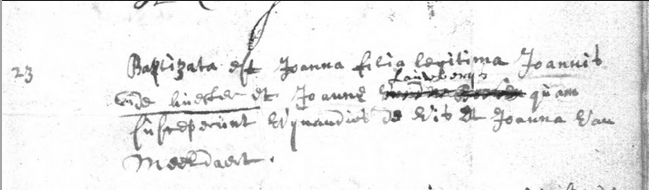 23 Baptizata est Joanna filia legitima Joannis
vande et Joannę Lansbergs quam
susceperunt Wynandus de Vis et Joanna Van
Meeldaert.